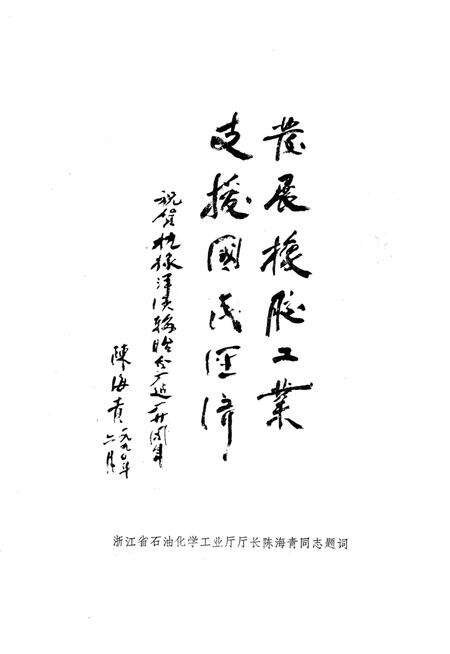 發展橡膠工業
支援國民經濟
祝贺杭橡洋溪轮胎分厂建厂周年
陳海青 一九九〇年
月
浙江省石油化学工业厅厅长陈海青同志题词